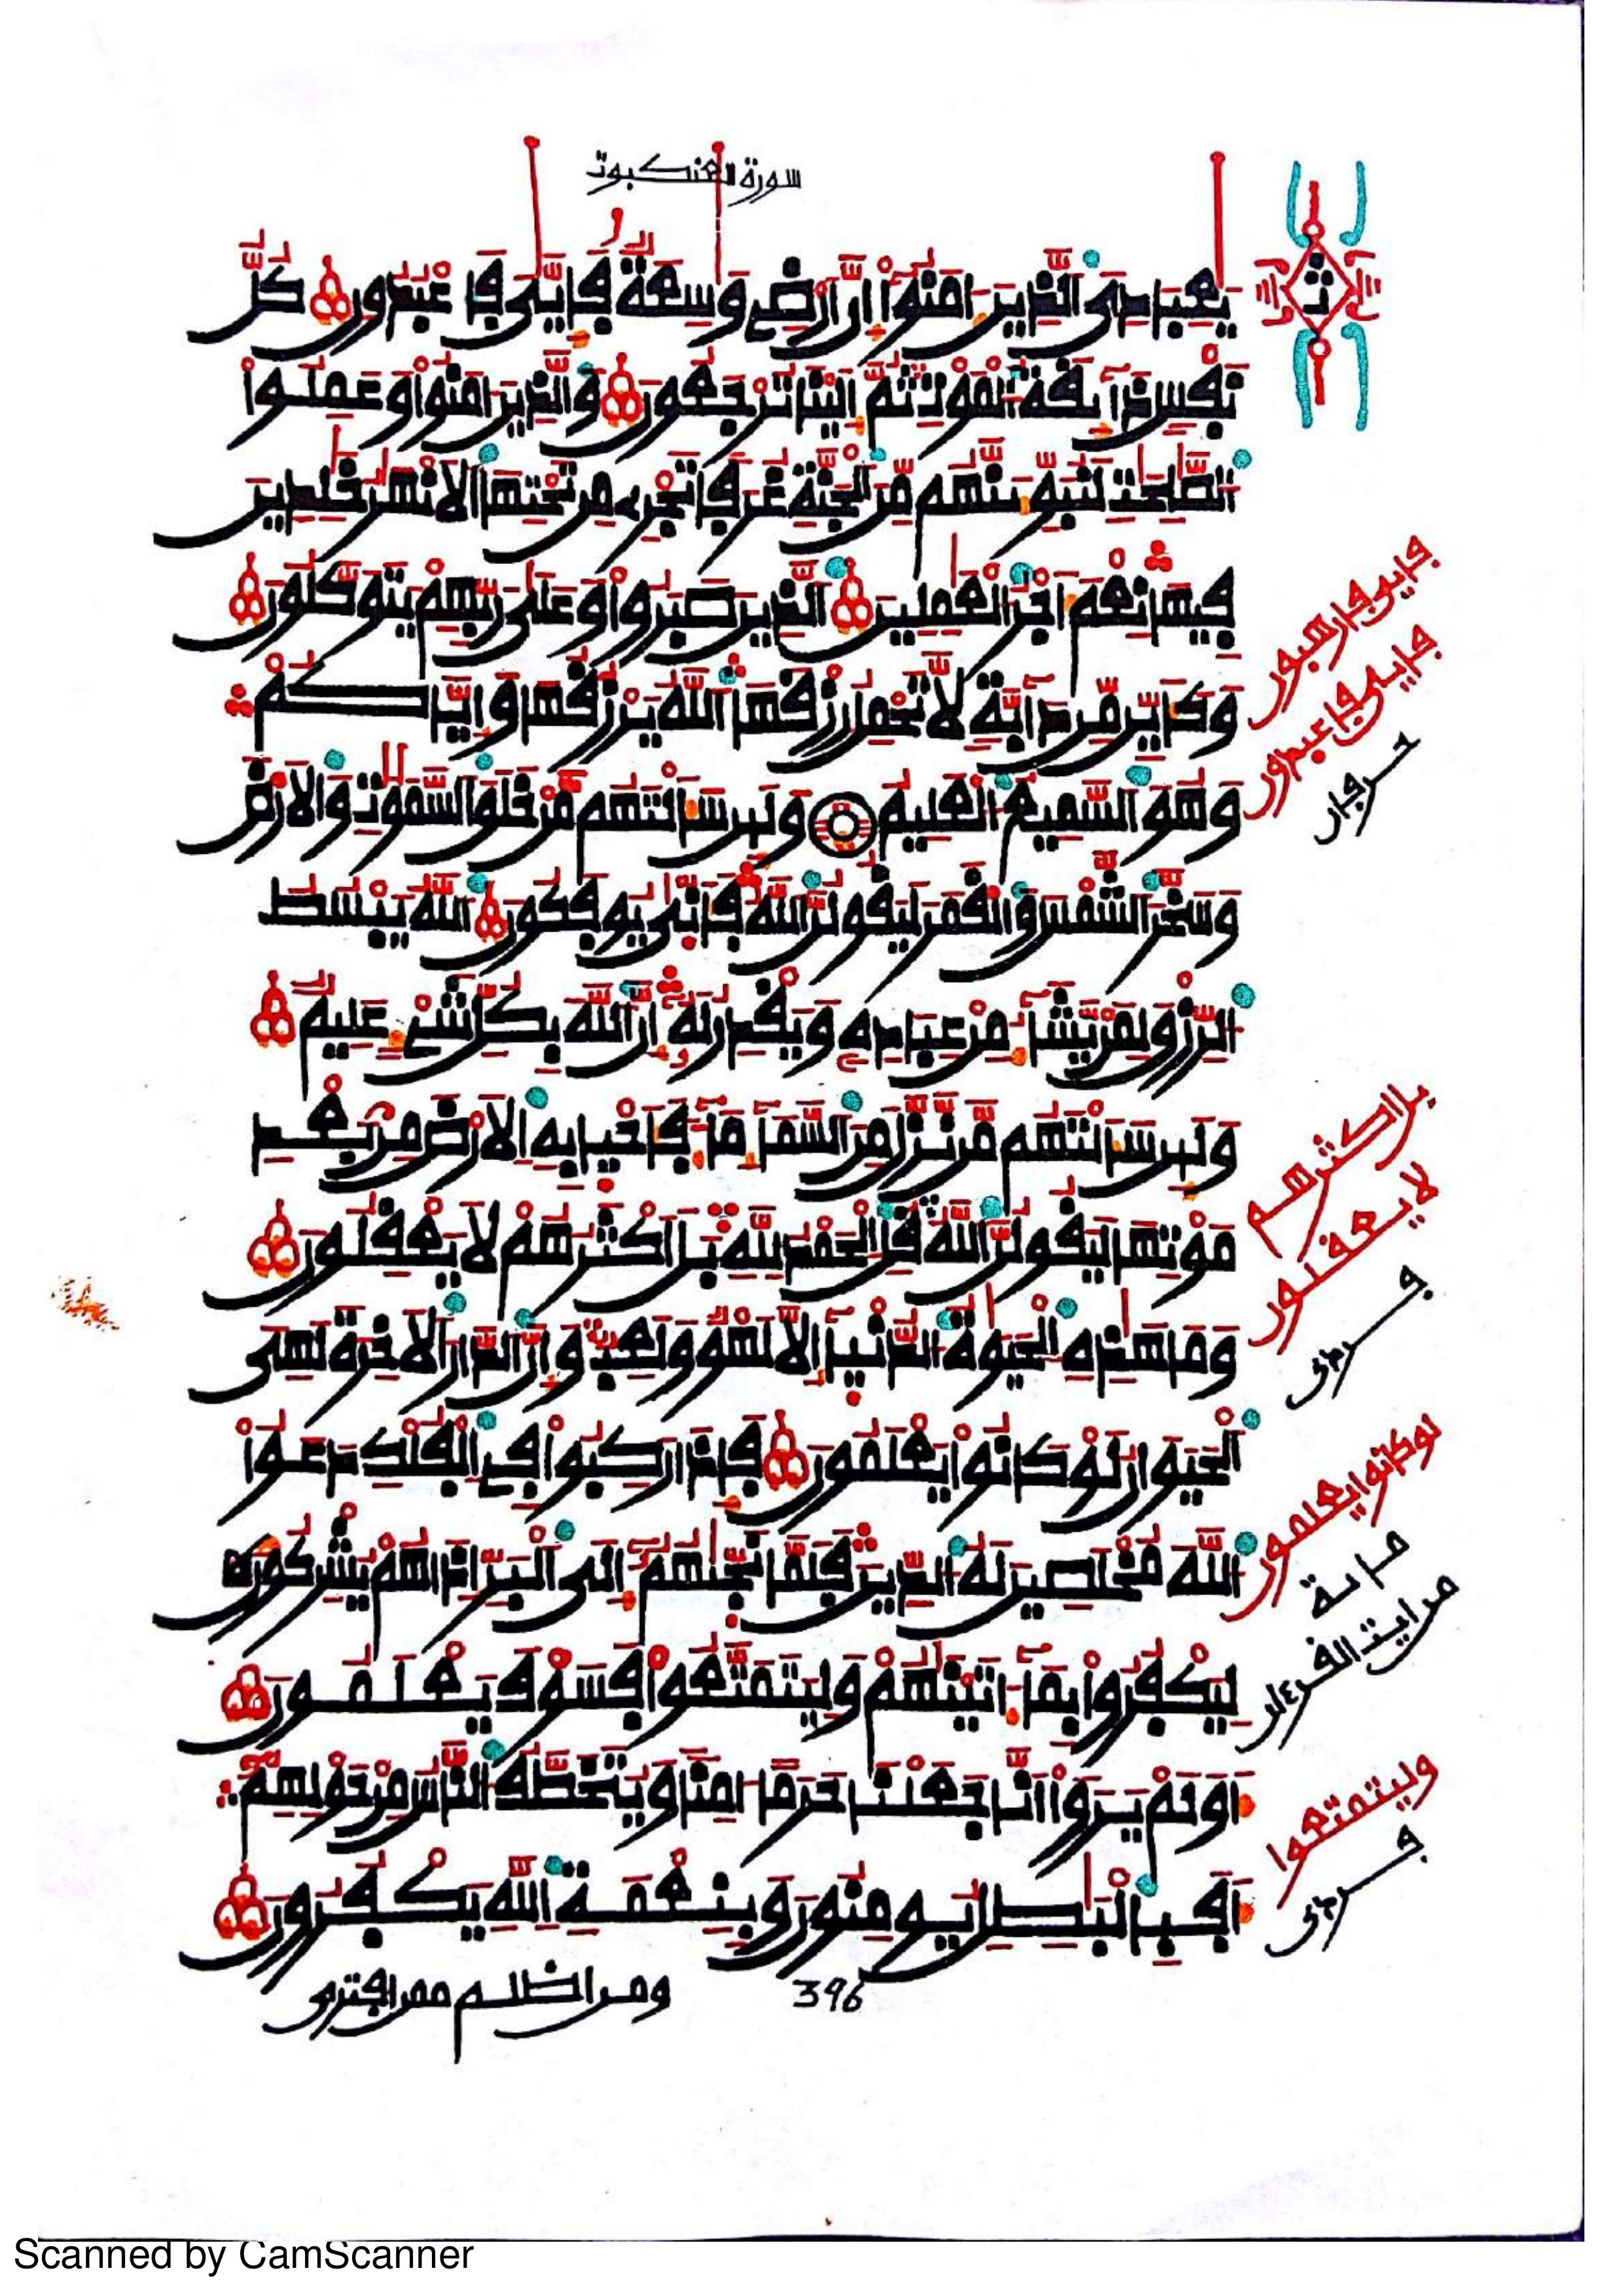 سورة العنكبوت
يعبادى الذين امنوا ان ارض وسعة فايى فاعبدون كل
نفس ذايقة الموت ثم الينا ترجعون والذين امنوا وعملوا
الصلحت لنبوينهم من الجنة غرفا تجرى من تحتها الانهر خلدين
فيها نعم اجر العملين الذين صبروا وعلى ربهم يتوكلون
وكاين من دابة لا تحمل رزقها الله يرزقها واياكم
وهو السميع العليم ولين سالتهم من خلق السموت والارض
وسخر الشمس والقمر ليقولن الله فانى يوفكون الله يبسط
الرزق لمن يشا من عباده ويقدر له ان الله بكل شى عليم
ولين سالتهم من نزل من السما ما فاحيا به الارض من بعد
موتها ليقولن الله قل الحمد لله بل اكثرهم لا يعقلون
وما هذه الحيوة الدنيا الا لهو ولعب وان الدار الاخرة لهى
الحيوان لو كانوا يعلمون فاذا ركبوا فى الفلك دعوا
الله مخلصين له الدين فلما نجيهم الى البر اذا هم يشركون
ليكفروا بما اتينهم وليتمتعوا فسوف يعلمون
اولم يروا انا جعلنا حرما امنا ويتخطف الناس من حولهم
افبالبطل يومنون وبنعمة الله يكفرون
ومن اظلم ممن افترى
396
فايى فارهبون
فايى فاعبدون
حرفان
بل اكثرهم
لا يعقلون
لو كانوا يعلمون
وليتمتعوا
Scanned by CamScanner